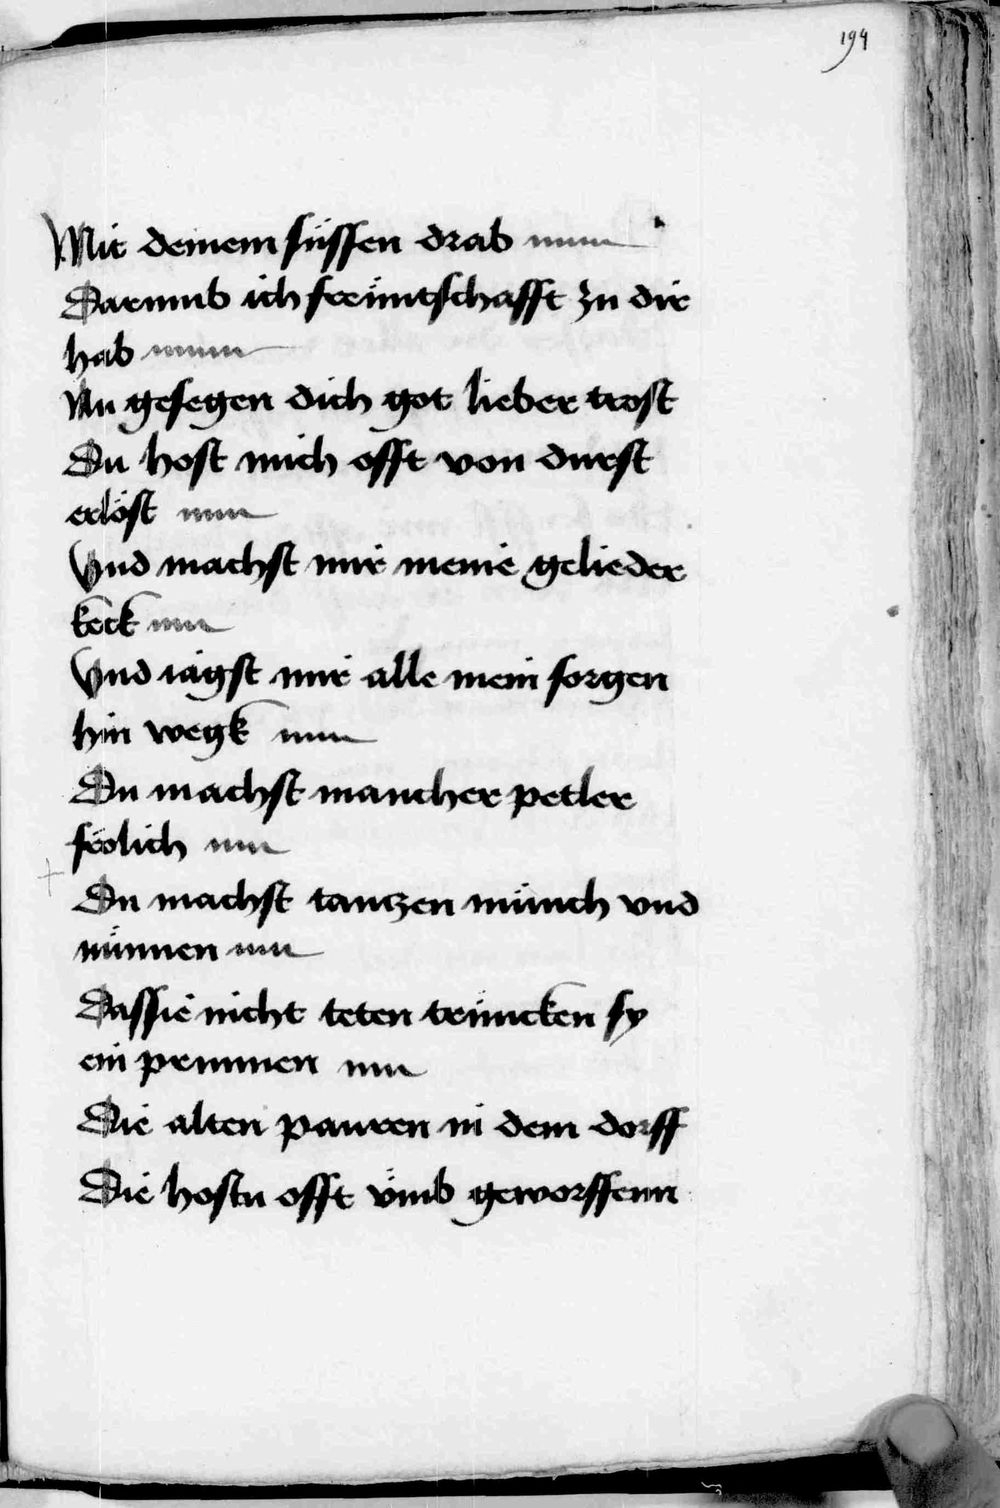 194
Mit deinem süssen drab
Darumb ich freüntschafft zu dir
hab
Nu gesegen dich got lieber trost
Du host mich offt von durst
erlöst
Vnd machst mir meine gelieder
keck
Vnd iagst mir alle mein sorgen
hin wegk
Du machst mancher petler
frölich
Du machst tanczen münch vnd
nünnen
Das sie nicht teten trüncken sy
ein prunnen
Die alten pauren in dem dorff
Die hostu offt vmb geworffenn